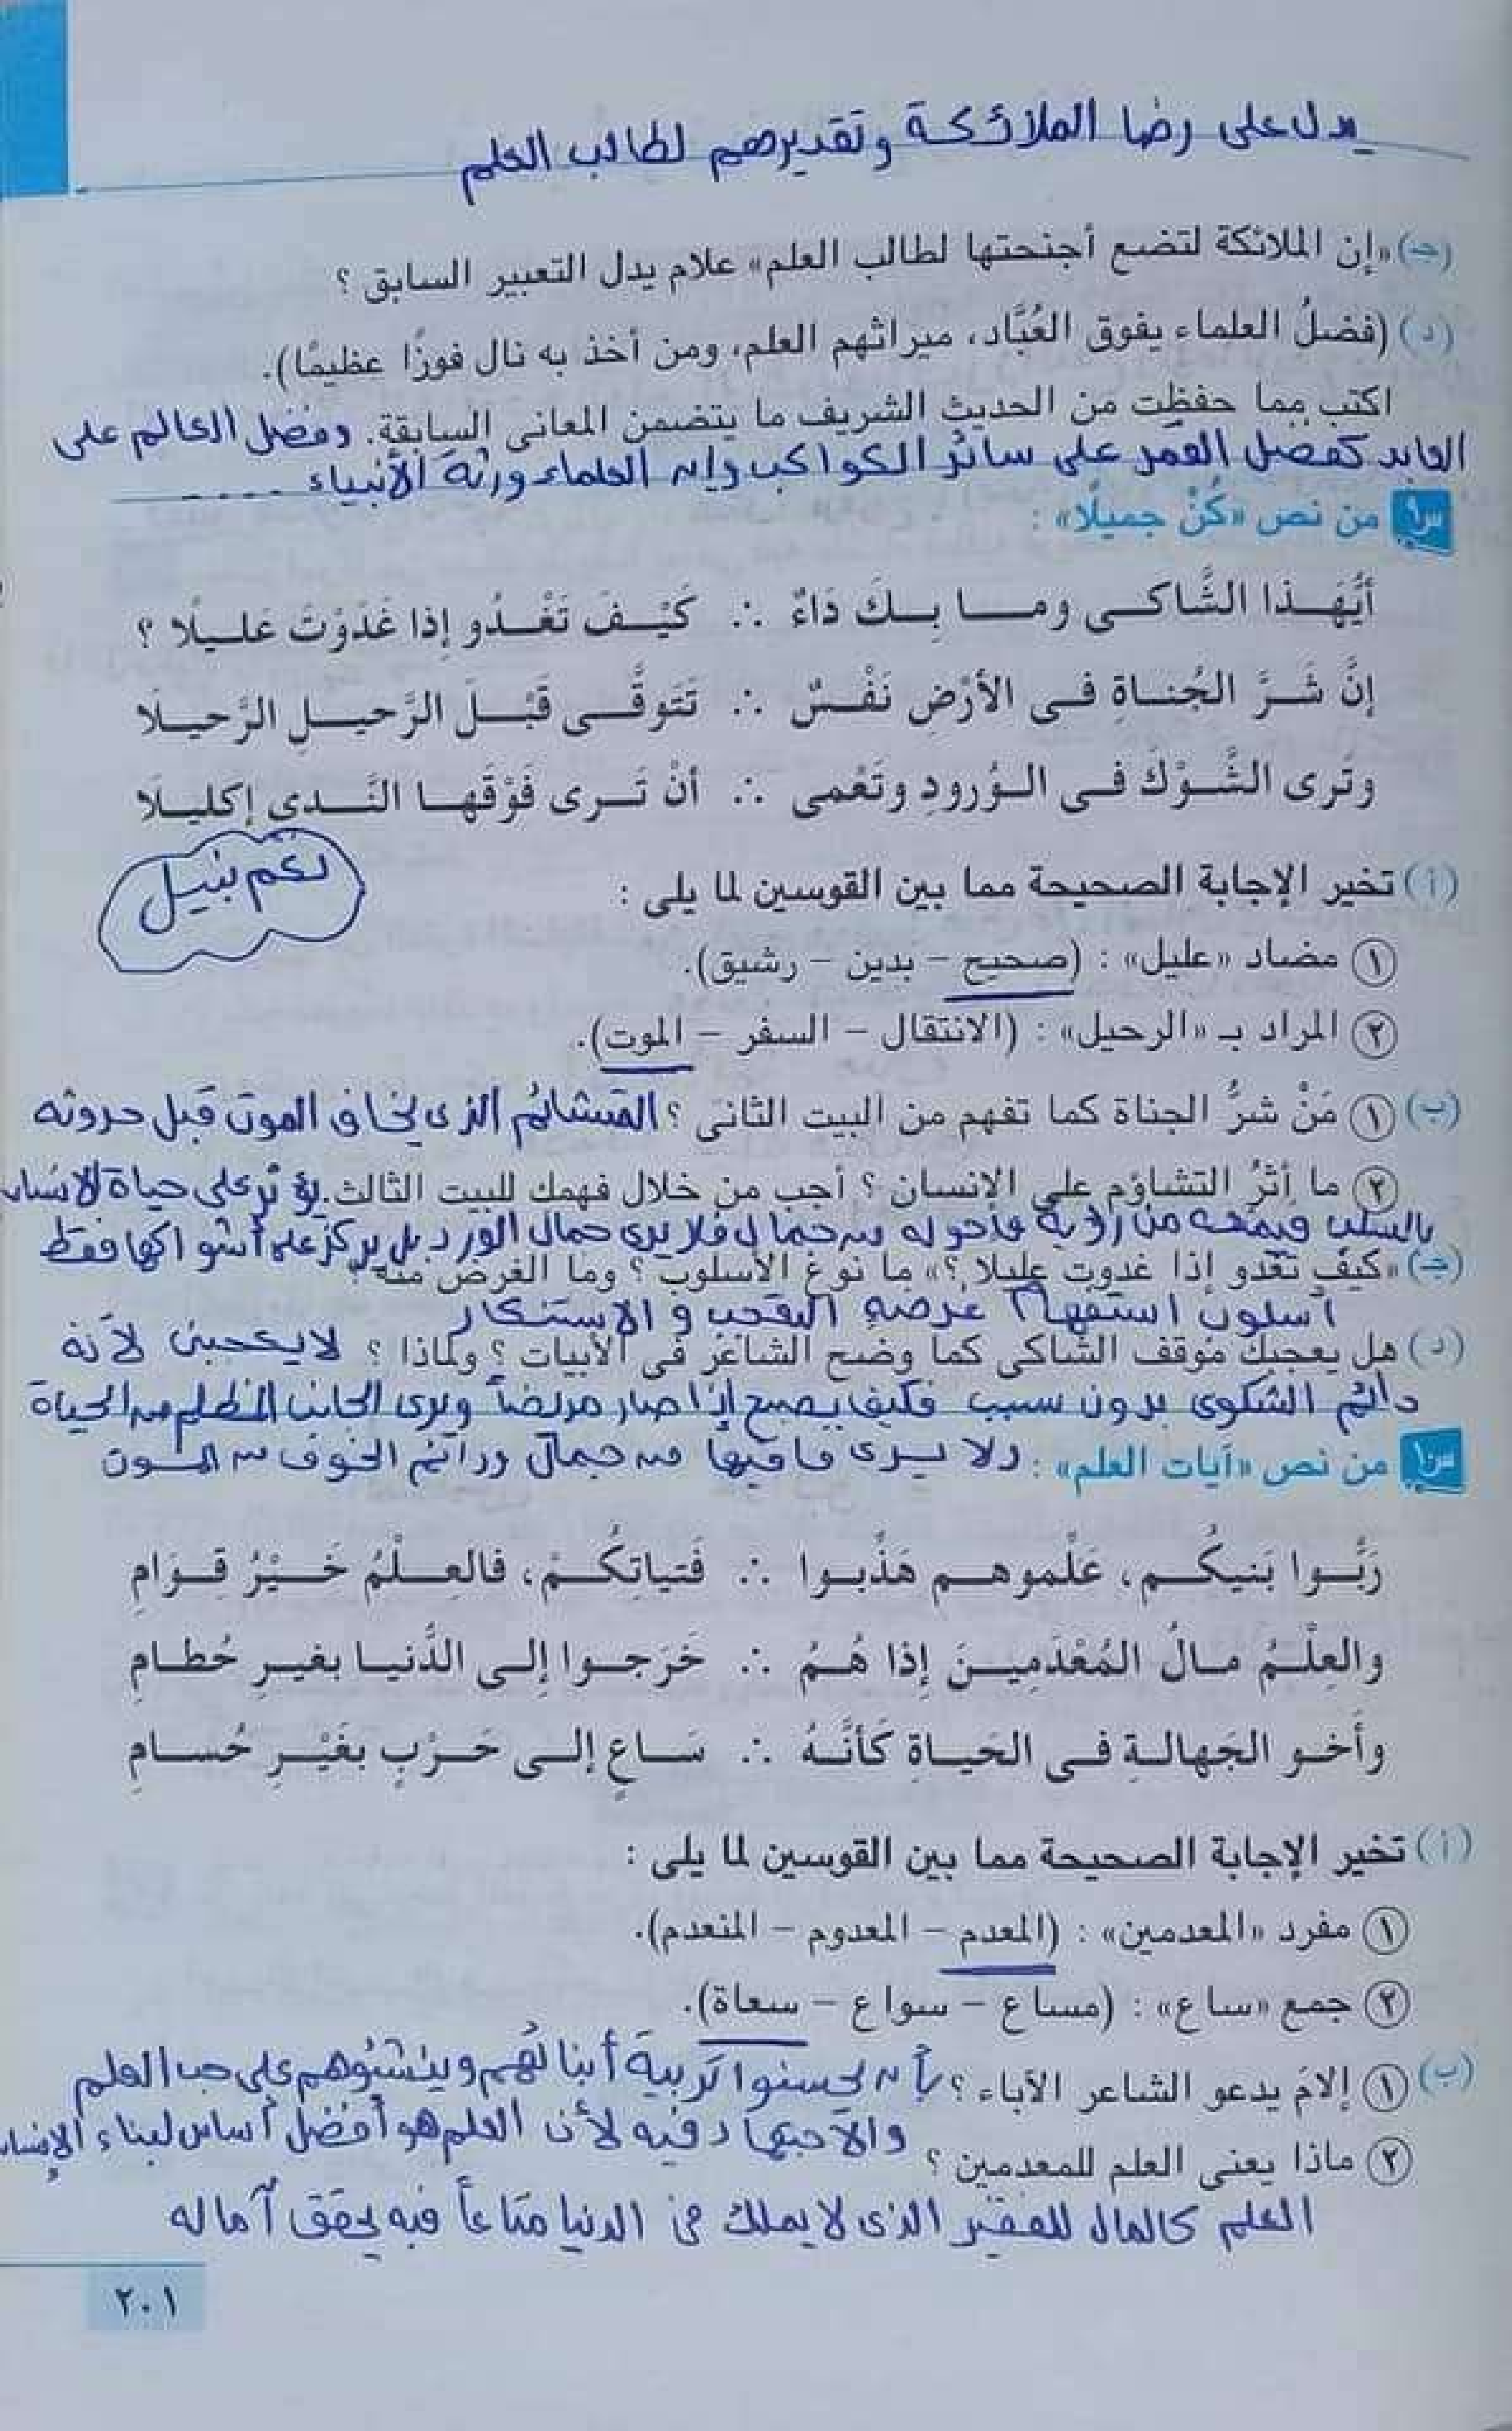 يدل على رضا الملائكة وتقديرهم لطالب العلم
(جـ) «إن الملائكة لتضع أجنحتها لطالب العلم» علام يدل التعبير السابق ؟
(د) (فضلُ العلماء يفوق العُبَّاد، ميراثهم العلم، ومن أخذ به نال فوزًا عظيمًا).
اكتب مما حفظت من الحديث الشريف ما يتضمن المعانى السابقة. وفضل العالم على
العابد كفضل القمر على سائر الكواكب وإن العلماء ورثة الأنبياء .....
س٩ من نص «كُنْ جميلًا» :
أيُّهَذا الشَّاكى وما بِكَ دَاءٌ ∴ كَيْفَ تَغْدُو إذا غَدَوْتَ عَليلًا ؟
إنَّ شَرَّ الجُناةِ فى الأرْضِ نَفْسٌ ∴ تَتَوقَّى قَبْلَ الرَّحيلِ الرَّحيلَا
وتَرى الشَّوْكَ فى الوُرودِ وتَعْمى ∴ أنْ تَرى فَوْقَها النَّدى إكليلَا
(أ) تخير الإجابة الصحيحة مما بين القوسين لما يلى :
① مضاد «عليل» : (صحيح – بدين – رشيق).
② المراد بـ «الرحيل» : (الانتقال – السفر – الموت).
(ب) ① مَنْ شرُّ الجناة كما تفهم من البيت الثانى ؟ المتشائم الذى يخاف الموت قبل حدوثه
② ما أثرُ التشاؤم على الإنسان ؟ أجب من خلال فهمك للبيت الثالث. يؤثر على حياة الإنسان
بالسلب فيمنعه من رؤية ما حوله من جمال فلا يرى جمال الورد بل يركز على أشواكها فقط
(جـ) «كيف تغدو إذا غدوت عليلا ؟» ما نوع الأسلوب ؟ وما الغرض منه ؟
أسلوب استفهام غرضه التعجب والاستنكار
(د) هل يعجبك موقف الشاكى كما وضح الشاعر فى الأبيات ؟ ولماذا ؟ لا يعجبنى لأنه
دائم الشكوى بدون سبب فكيف يصبح إذا صار مريضاً ويرى الجانب المظلم من الحياة
س١٠ من نص «آيات العلم» : ولا يرى ما فيها من جمال ودائم الخوف من الموت
رَبُّوا بَنيكُم، عَلِّموهم هَذِّبوا ∴ فَتياتِكُمْ، فالعِلْمُ خَيْرُ قِوَامِ
والعِلْمُ مالُ المُعْدَمِينَ إذا هُمُ ∴ خَرَجوا إلى الدُّنيا بغيرِ حُطامِ
وأخو الجَهالةِ فى الحَياةِ كَأنَّهُ ∴ سَاعٍ إلى حَرْبٍ بغَيْرِ حُسامِ
(أ) تخير الإجابة الصحيحة مما بين القوسين لما يلى :
① مفرد «المعدمين» : (المعدم – المعدوم – المنعدم).
② جمع «ساع» : (مساع – سواع – سعاة).
(ب) ① إلامَ يدعو الشاعر الآباء ؟ بأن يحسنوا تربية أبنائهم وينشئوهم على حب العلم
والاجتهاد فيه لأن العلم هو أفضل أساس لبناء الإنسان
② ماذا يعنى العلم للمعدمين ؟
العلم كالمال للفقير الذى لا يملك فى الدنيا متاعاً فبه يحقق آماله
٢٠١